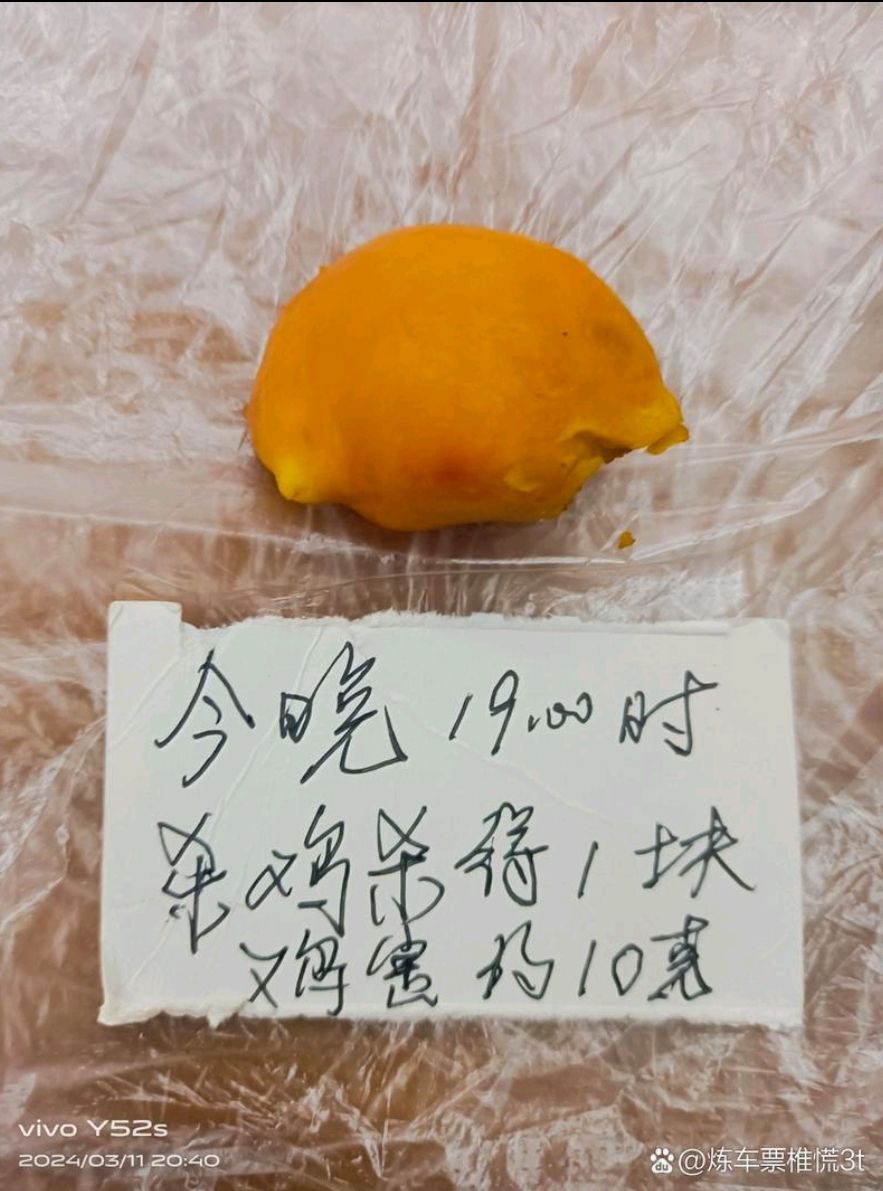 今晚19.00时
杀鸡杀得1块
鸡宝约10克
vivo Y52s
2024/03/11 20:40
@炼车票椎慌3t